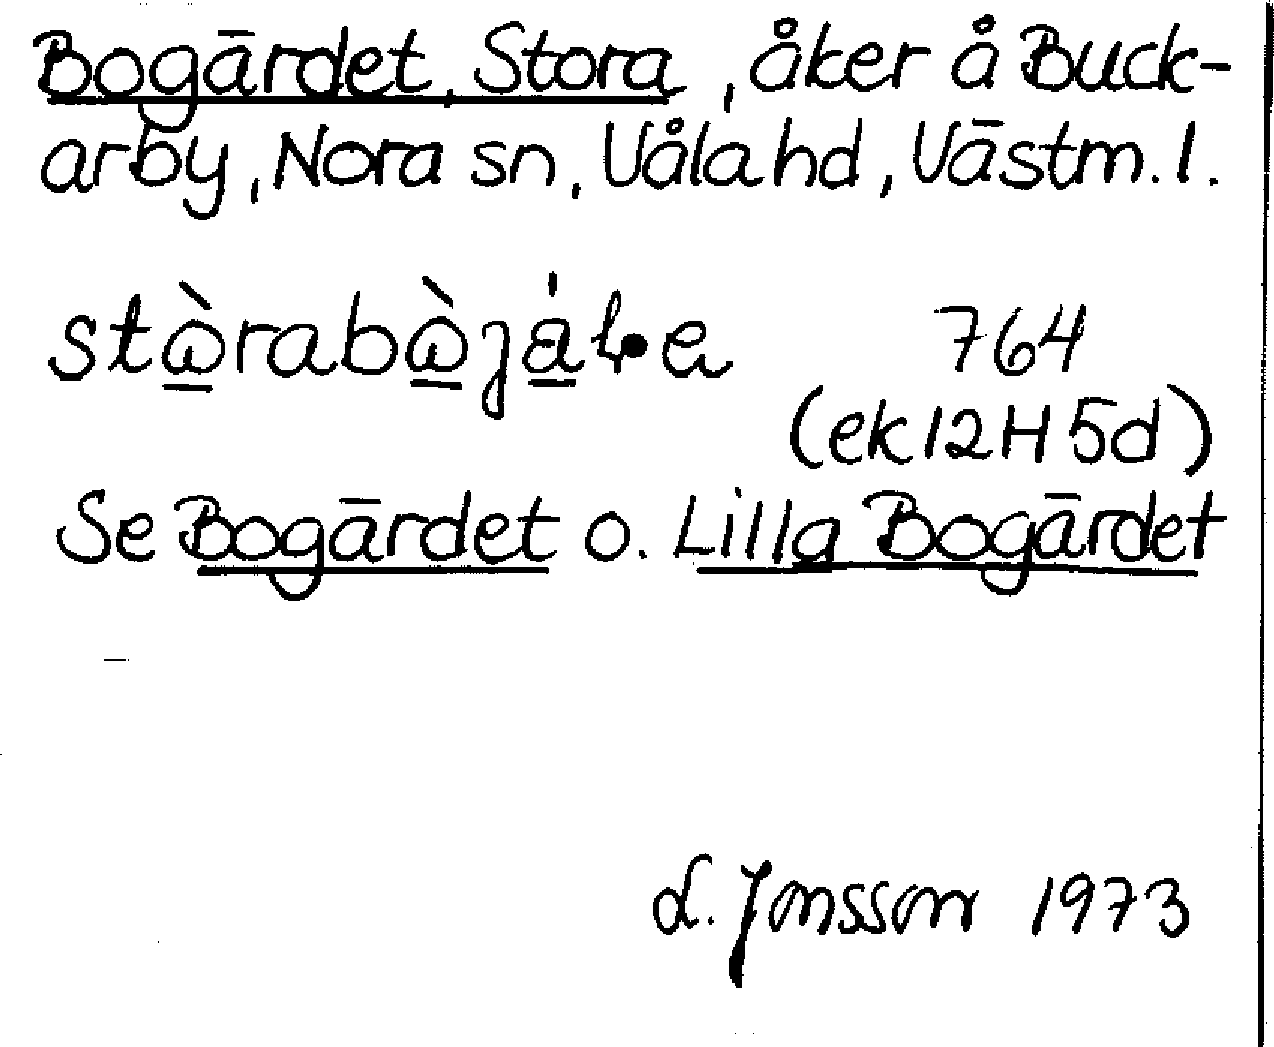 Bogärdet, Stora, åker å Buck-
arby, Nora sn, Våla hd, Västm. l.
764
(ek 12H 5d)
Se Bogärdet o. Lilla Bogärdet
L. Jonsson 1973